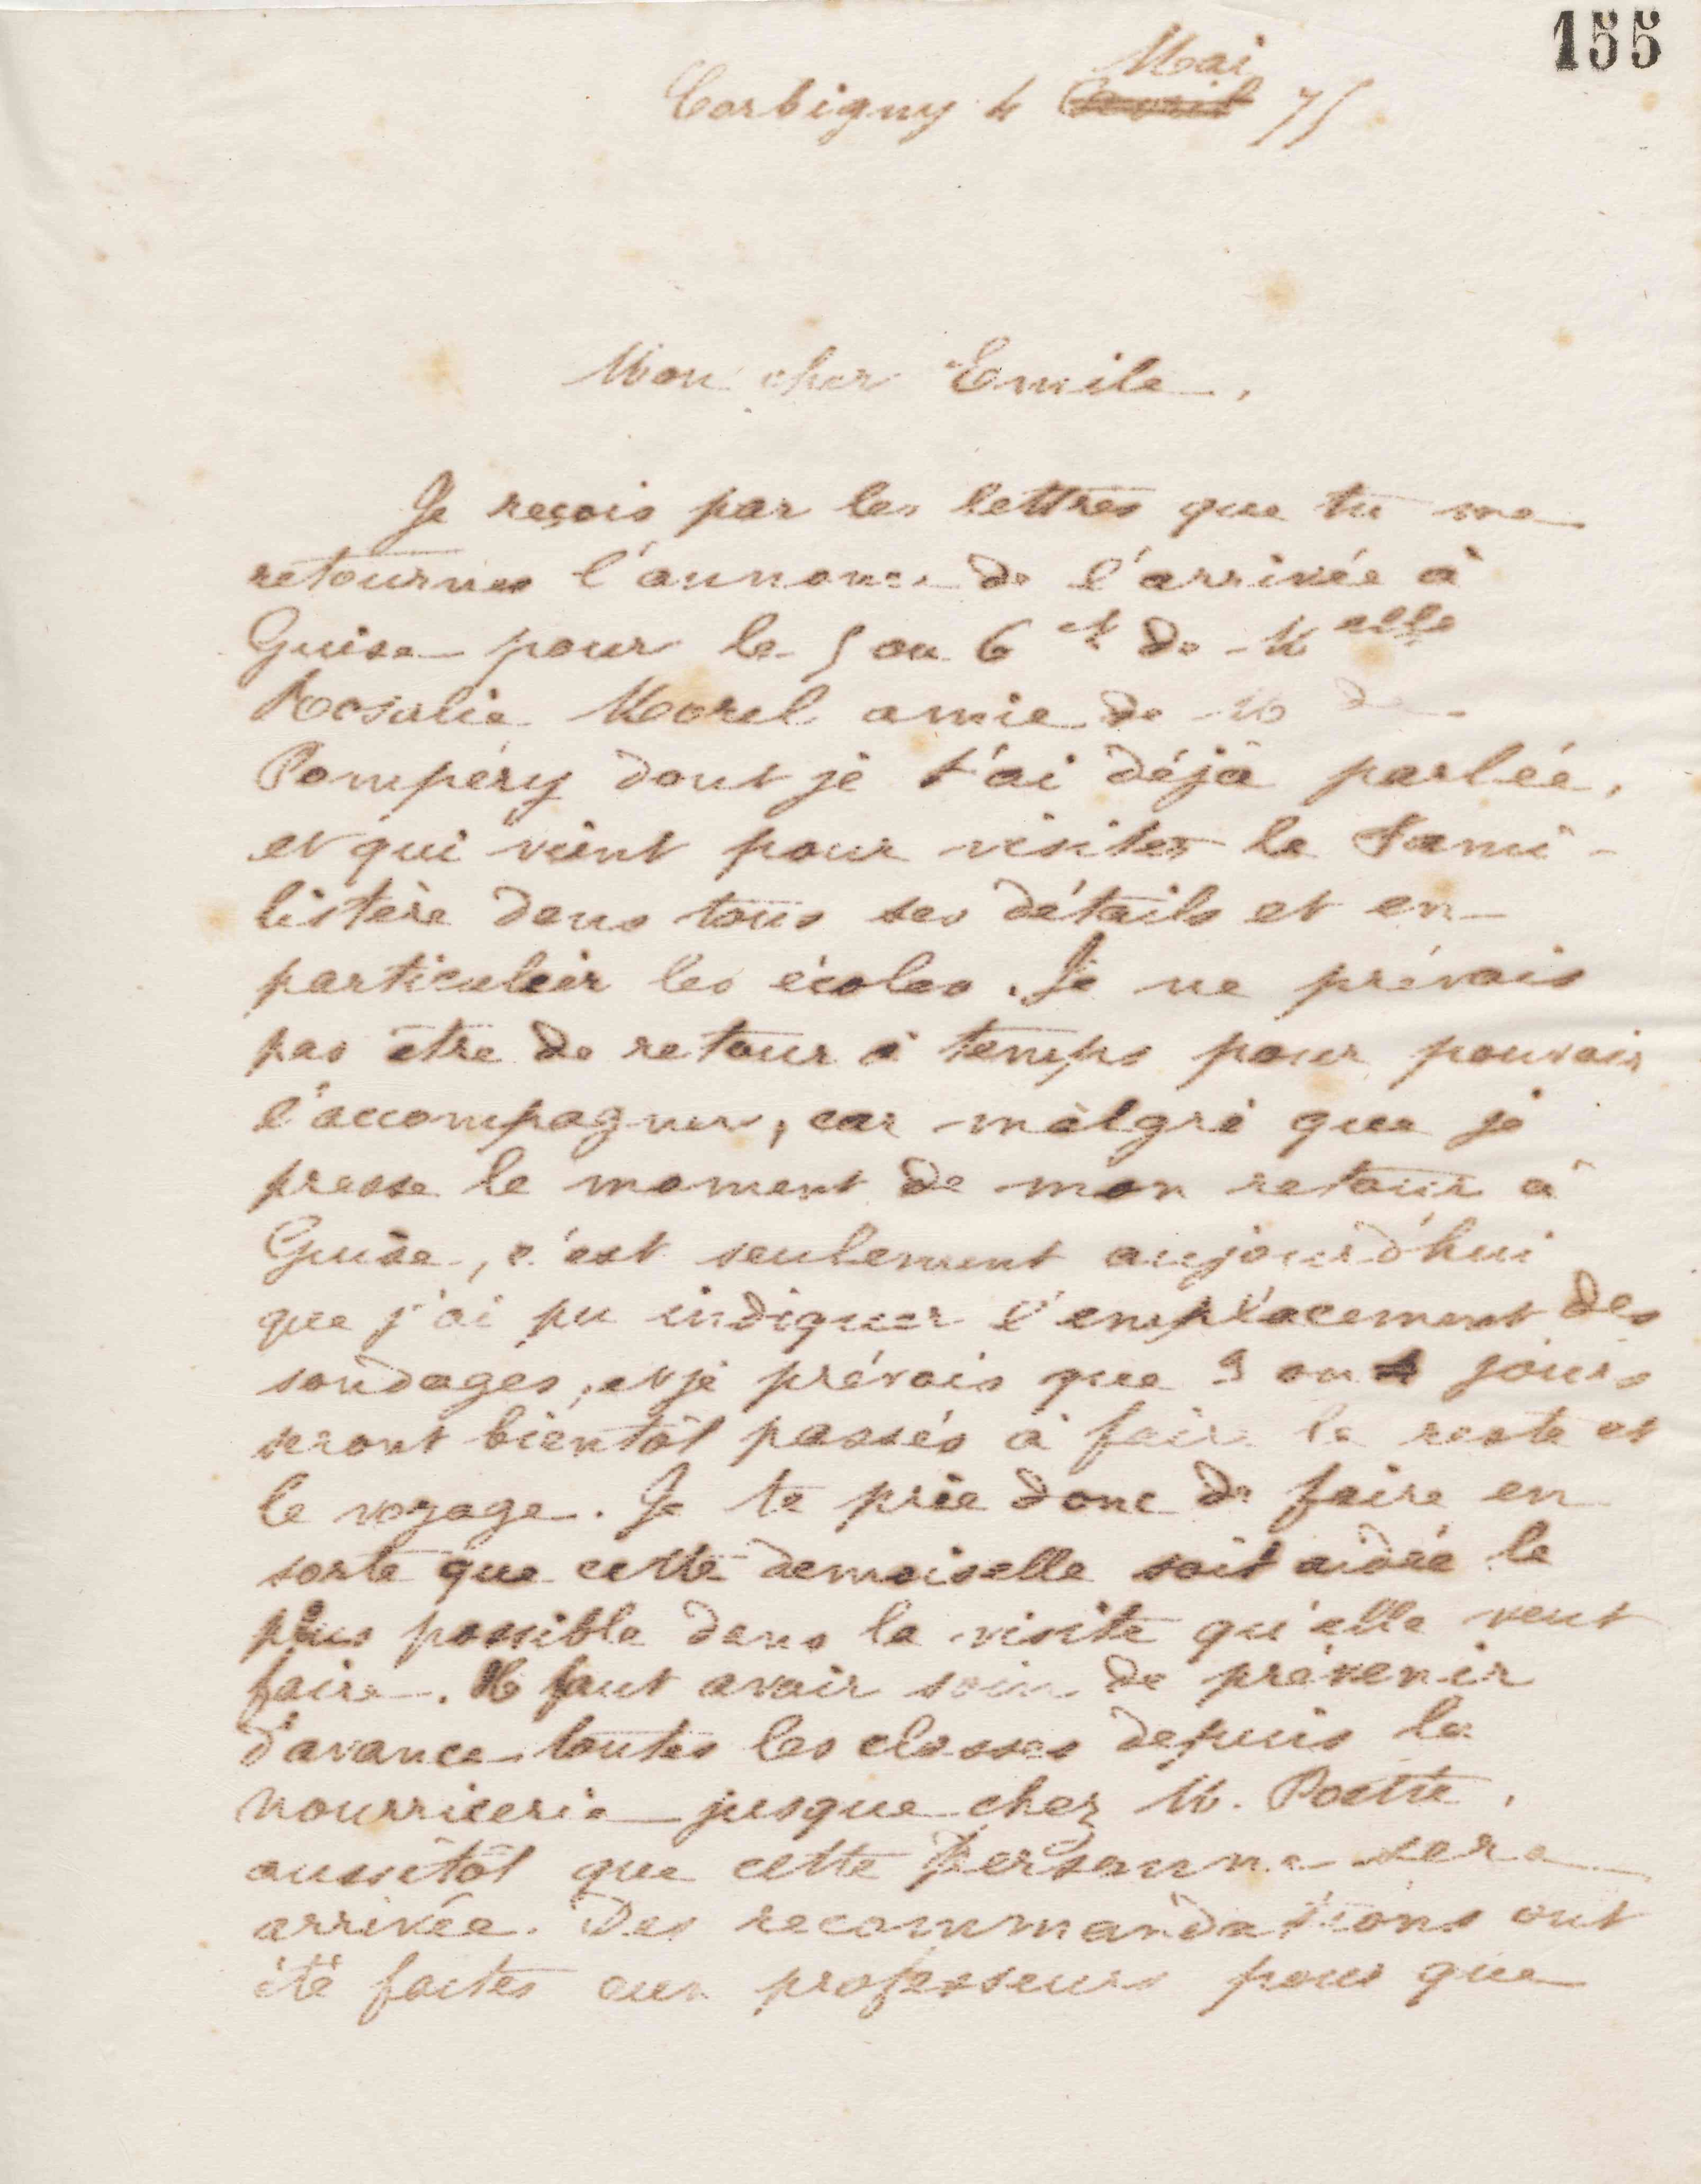 155
Mai
Corbigny 4 Avril 75
Mon cher Emile,
Je reçois par les lettres que tu me
retournes l'annonce de l'arrivée à
Guise pour le 5 ou 6 ct de Melle
Rosalie Morel amie de M de
Pompéry dont je t'ai déjà parlée,
et qui vient pour visiter le Fami-
listère dans tous ses détails et en
particulier les écoles. Je ne prévois
pas être de retour à temps pour pouvoir
l'accompagner, car malgré que je
presse le moment de mon retour à
Guise, c'est seulement aujourd'hui
que j'ai pu indiquer l'emplacement des
sondages, et je prévois que 3 ou 4 jours
seront bientôt passés à faire le reste et
le voyage. Je te prie donc de faire en
sorte que cette demoiselle soit aidée le
plus possible dans la visite qu'elle veut
faire. Il faut avoir soin de prévenir
d'avance toutes les classes depuis la
nourricerie jusque chez M. Poëtte,
aussitôt que cette personne sera
arrivée. Des recommandations ont
été faites aux professeurs pour que